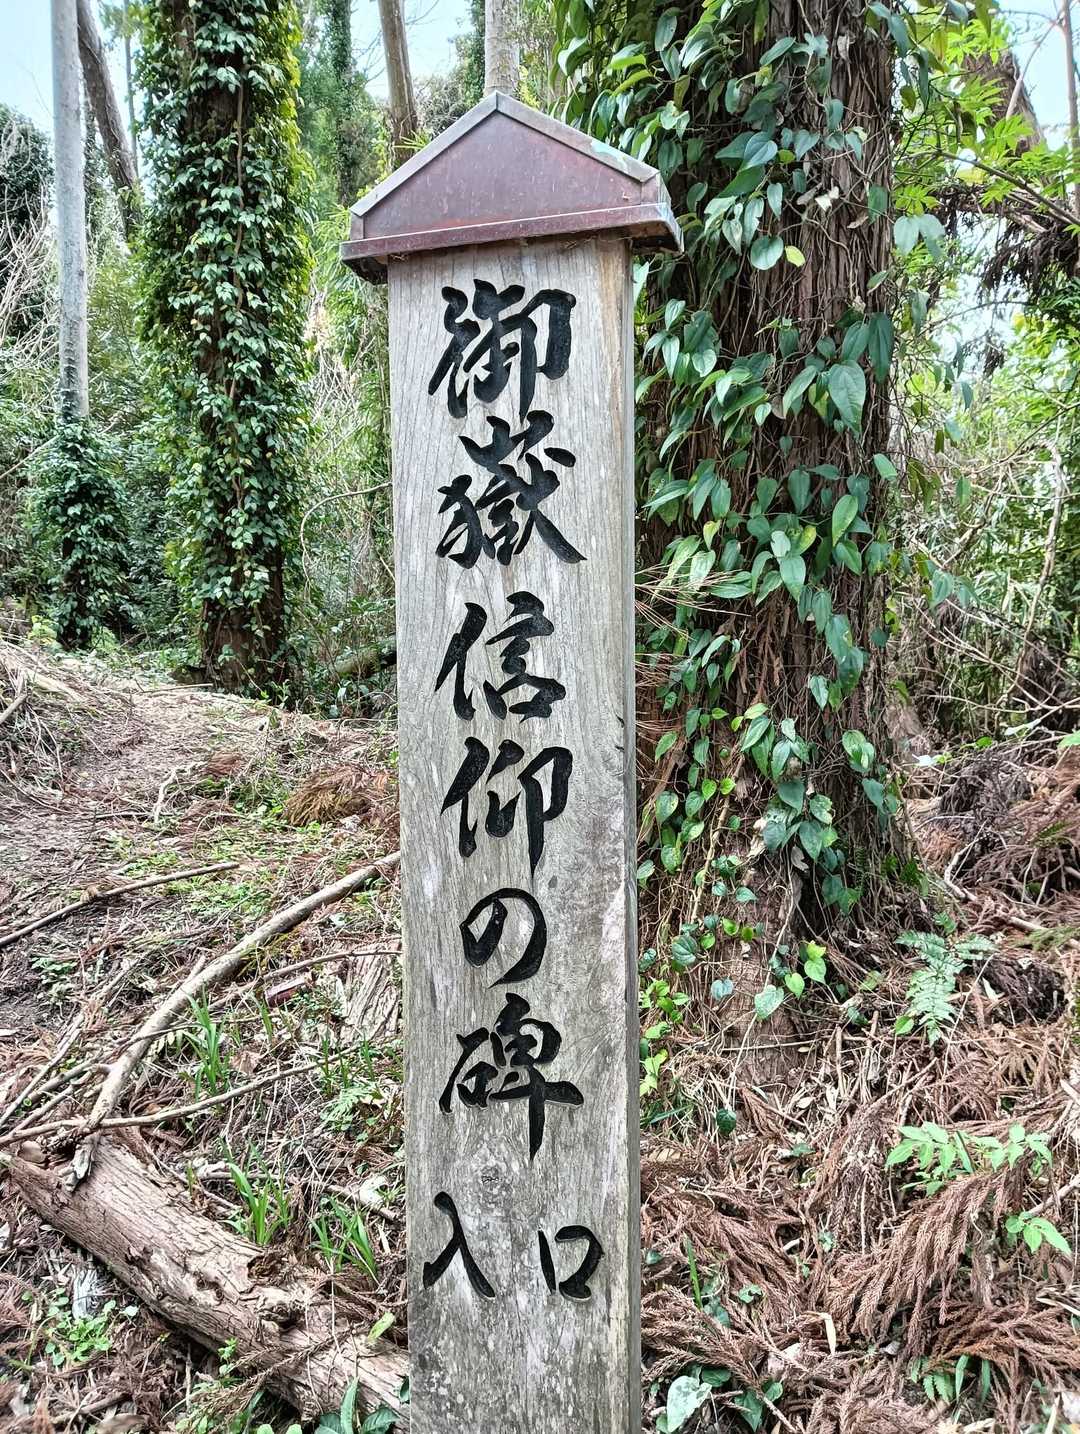 御嶽信仰の碑
入口